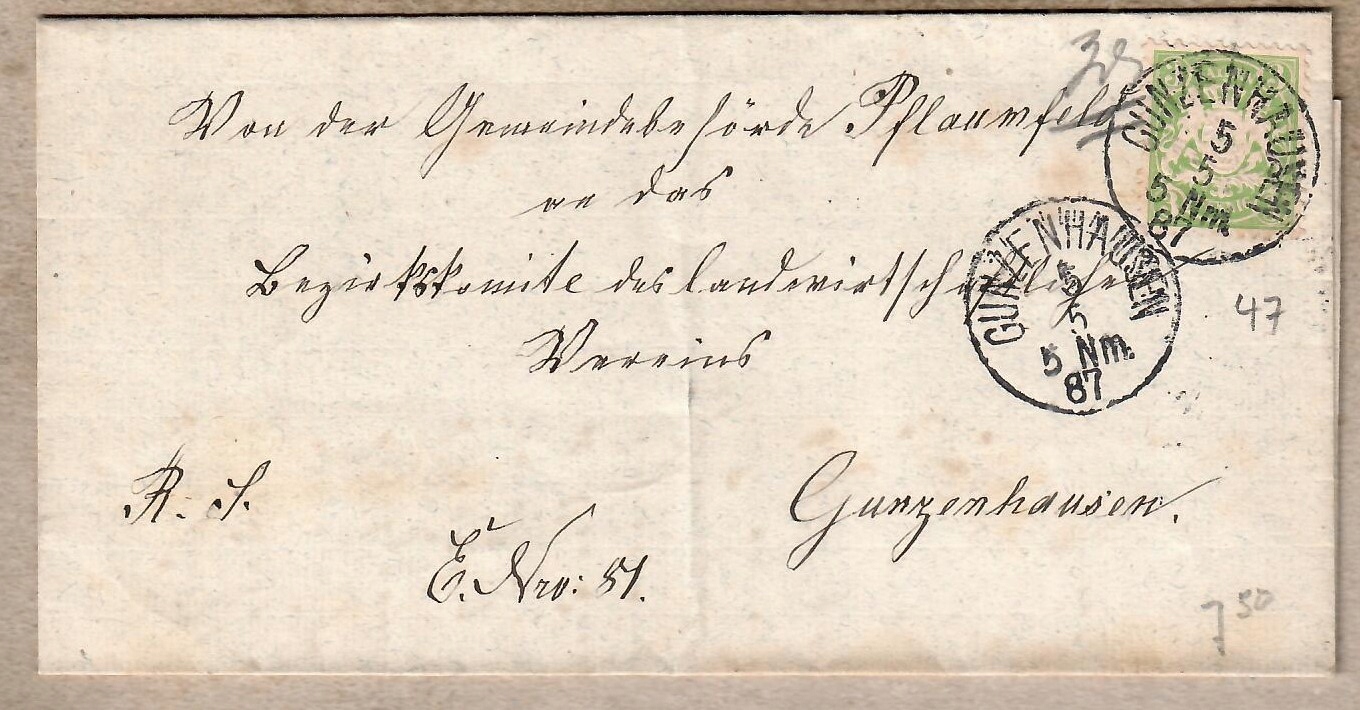 Von der Gemeindebehörde Pflaumfeld
an das
Bezirkskomite des landwirtschaftlichen
Vereins
R. S.
Gunzenhausen.
E. Nro: 51.
GUNZENHAUSEN
5
5
5 Nm.
87
GUNZENHAUSEN
5
5
5 Nm.
87
47
7 50